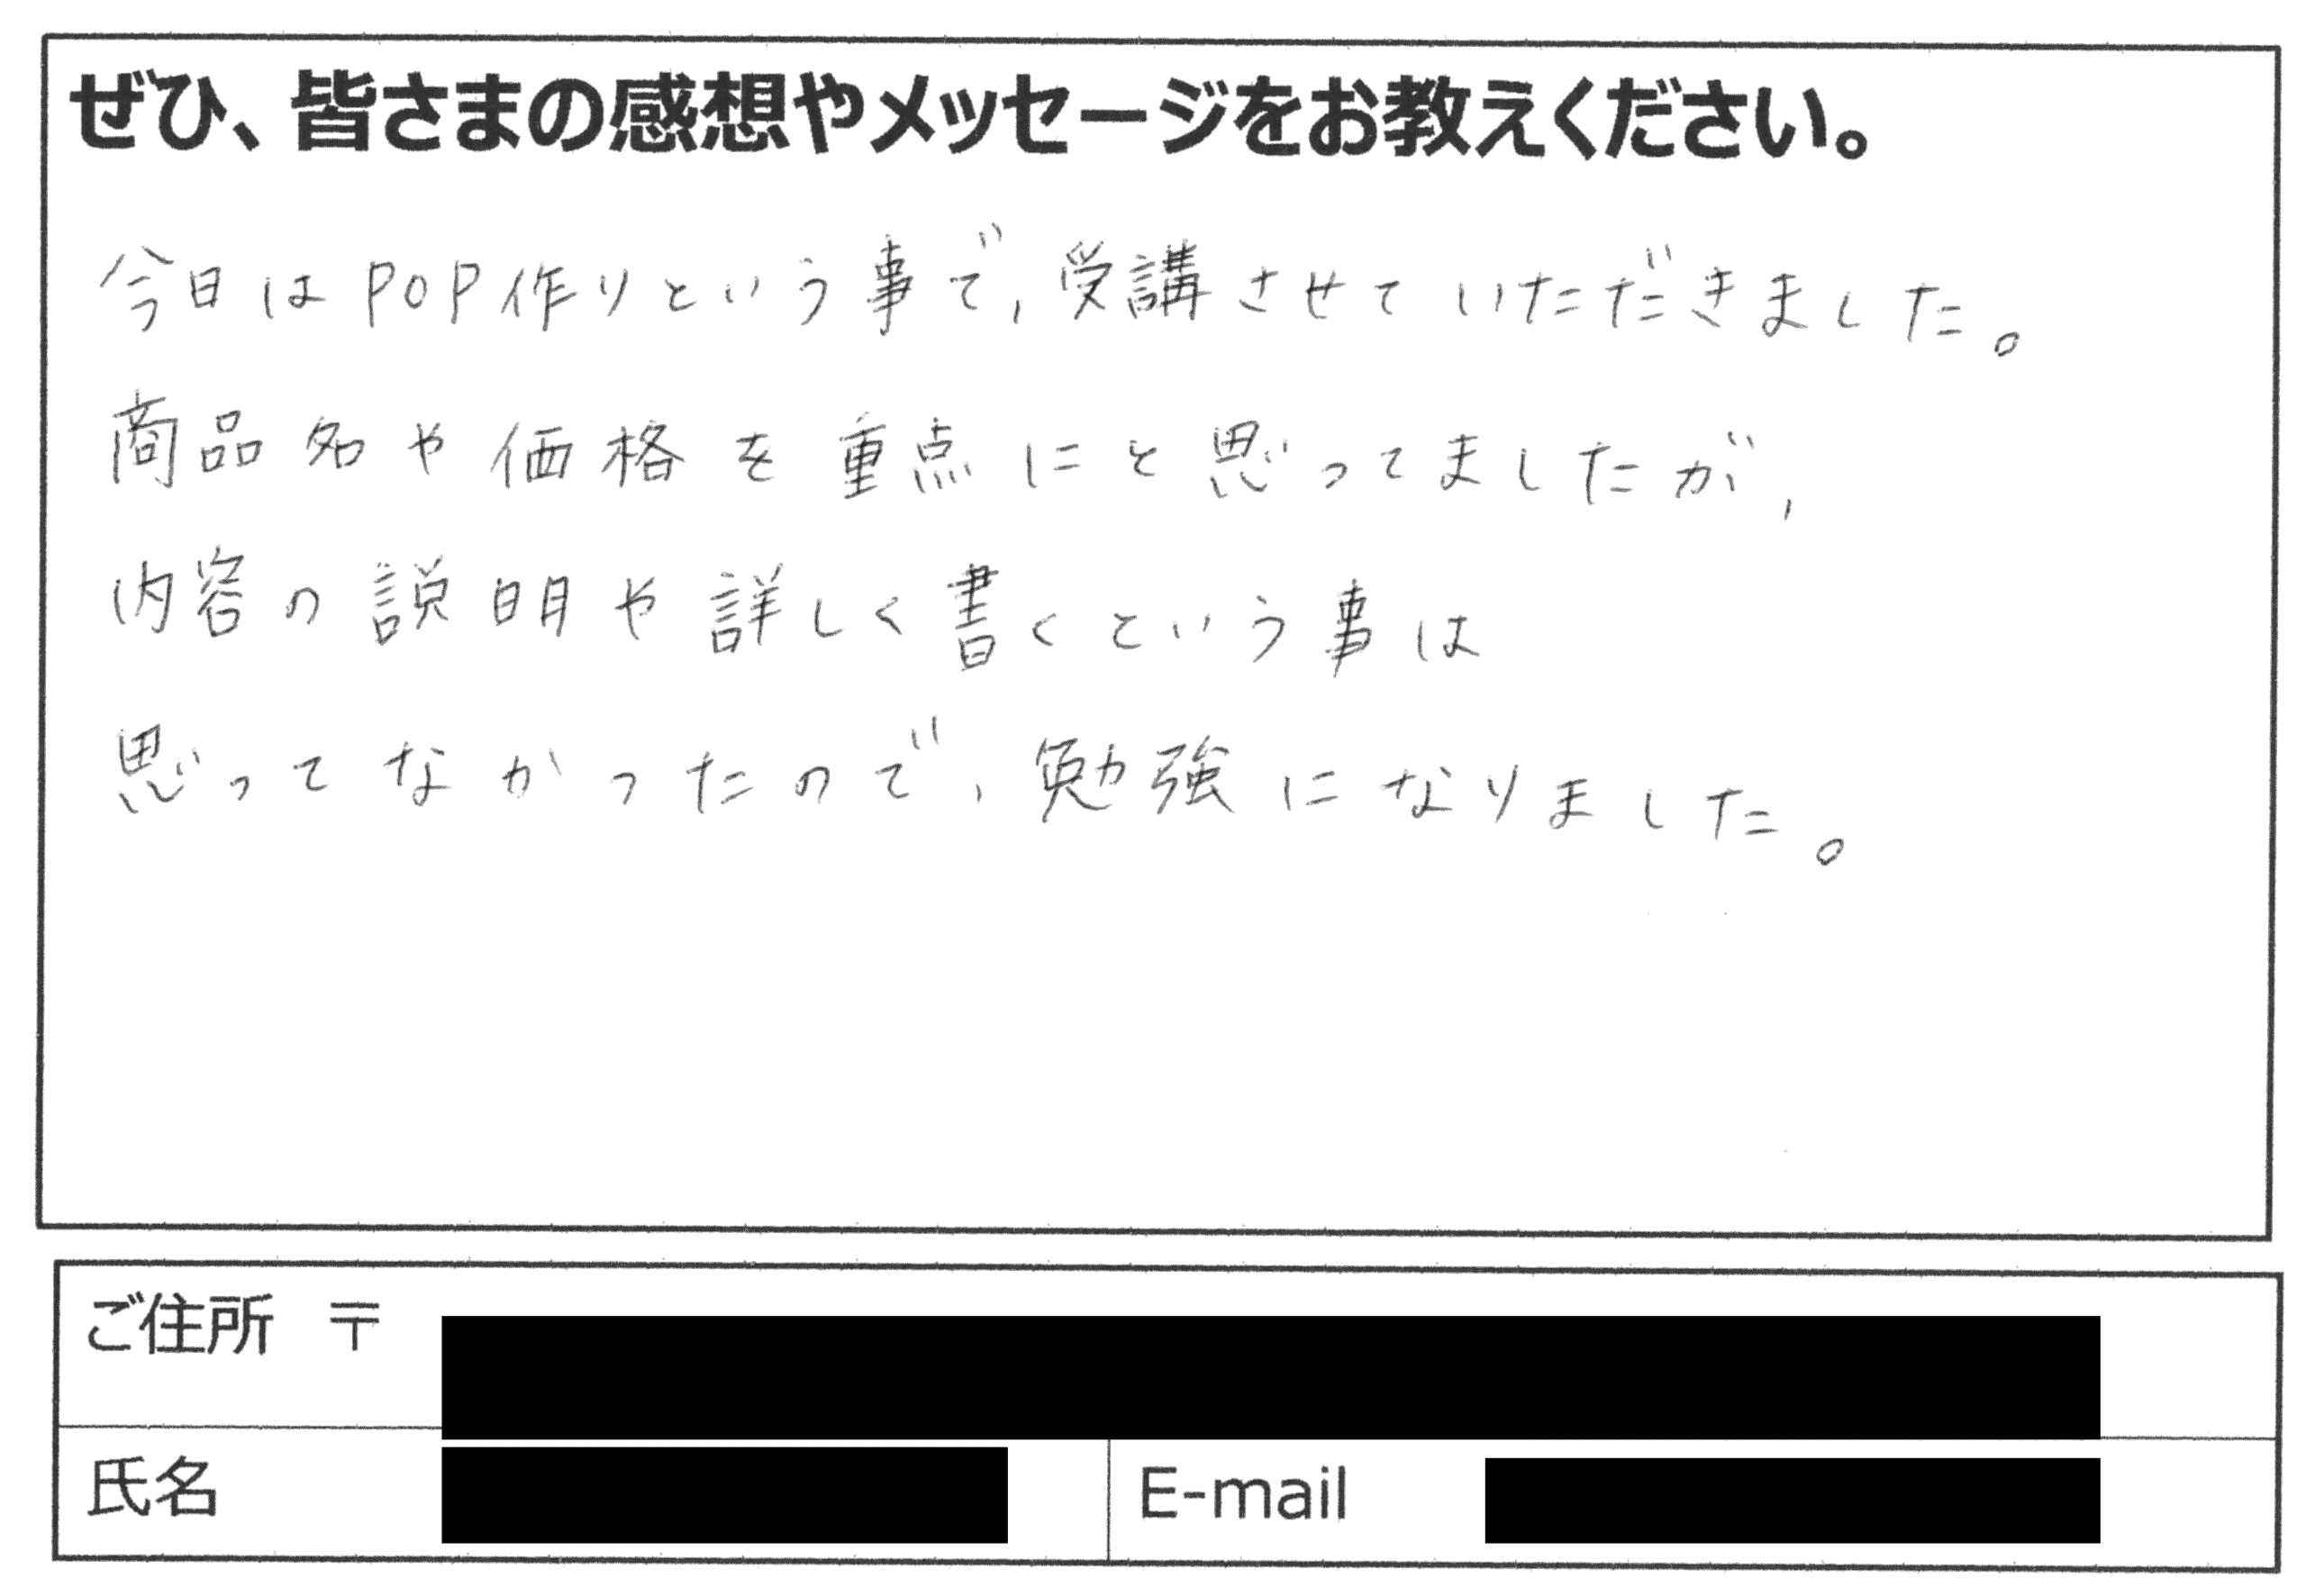 ぜひ、皆さまの感想やメッセージをお教えください。
今日はPOP作りという事で、受講させていただきました。
商品名や価格を重点にと思ってましたが、
内容の説明や詳しく書くという事は
思ってなかったので、勉強になりました。
ご住所 〒
氏名
E-mail